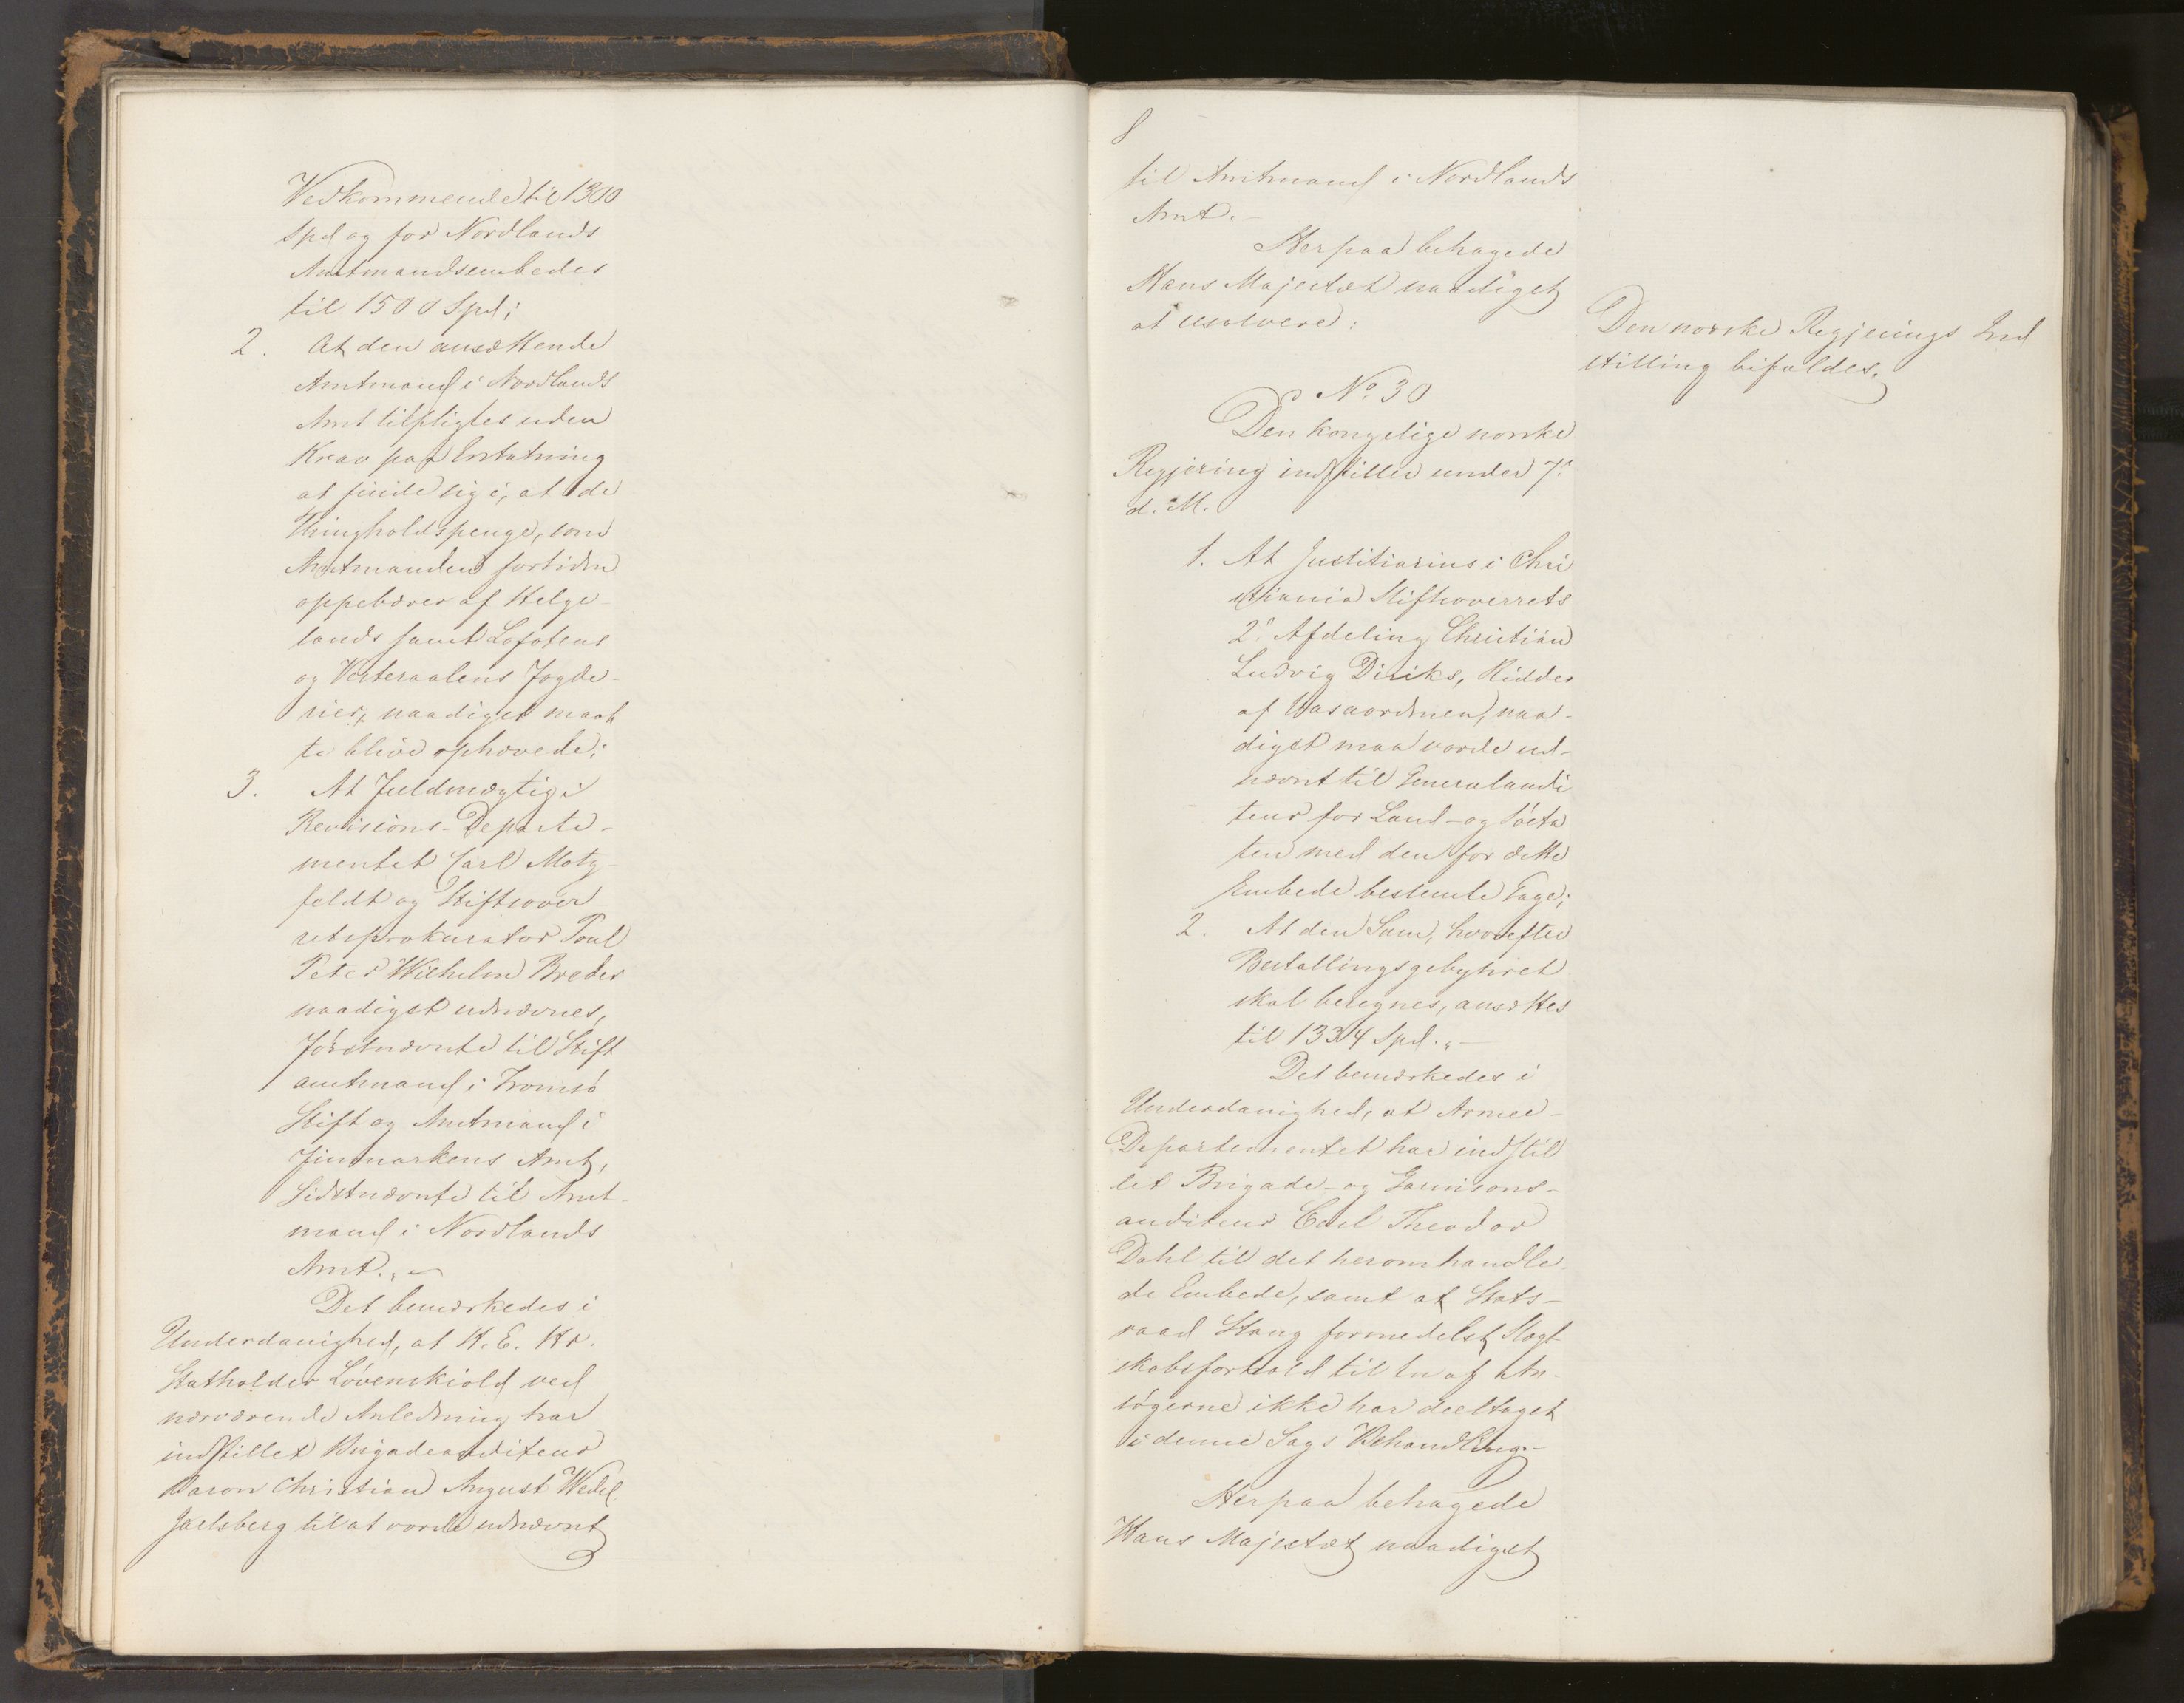 Vedkommende til 1300
Spd og for Nordlands
Amtmandsembedes
til 1500 Spd;
2. At den ansættende
Amtmand i Nordlands
Amt tilpligtes uden
Krav paa Erstatning
at finde sig i, at de
Thingholdspenge, som
Amtmanden fortiden
oppebærer af Helge-
lands samt Lofotens
og Vesteraalens Fogde-
rier, naadigst maat
te blive ophævede;
3. At Fuldmægtig i
Revisions-Departe-
mentet Carl Motz-
feldt og Stiftsover-
retsprokurator Poul
Peter Wilhelm Breder
naadigst udnævnes,
Førstnævnte til Stift
amtmand i Tromsø
Stift og Amtmand i
Finmarkens Amt,
Sidstnævnte til Amt-
mand i Nordlands
Amt.
Det bemærkedes i
Underdanighed, at H. E. Hr.
Statholder Løvenskiold ved
nærværende Anledning har
indstillet Brigadeauditeur
Baron Christian August Wedel
Jarlsberg til at vorde udnævnt
8
til Amtmand i Nordlands
Amt.-
Herpaa behagede
Hans Majestæt naadigst
at resolvere:
Den norske Regjerings Ind
stilling bifaldes.
No. 30
Den kongelige norske
Regjering indstiller under 7.
d. M.
1. At Justitiarius i Chri
stiania Stiftsoverrets
2. Afdeling Christian
Ludvig Diriks, Ridder
af Wasaordenen, naa-
digst maa vorde ud-
nævnt til Generalaudi
teur for Land- og Søeta
ten med den for dette
Embede bestemte Gage;
2. At den Sum, hvorefter
Bestallingsgebyhret
skal beregnes, ansættes
til 1334 Spd.-
Det bemærkedes i
Underdanighed, at Armee-
Departementet har indstil
let Brigade- og Garnisons-
auditeur Carl Theodor
Dahl til det heromhandle
de Embede, samt at Stats-
raad Stang formedelst Slægt
skabsforhold til en af An-
søgerne ikke har deeltaget
i denne Sags Behandling.-
Herpaa behagede
Hans Majestæt naadigst